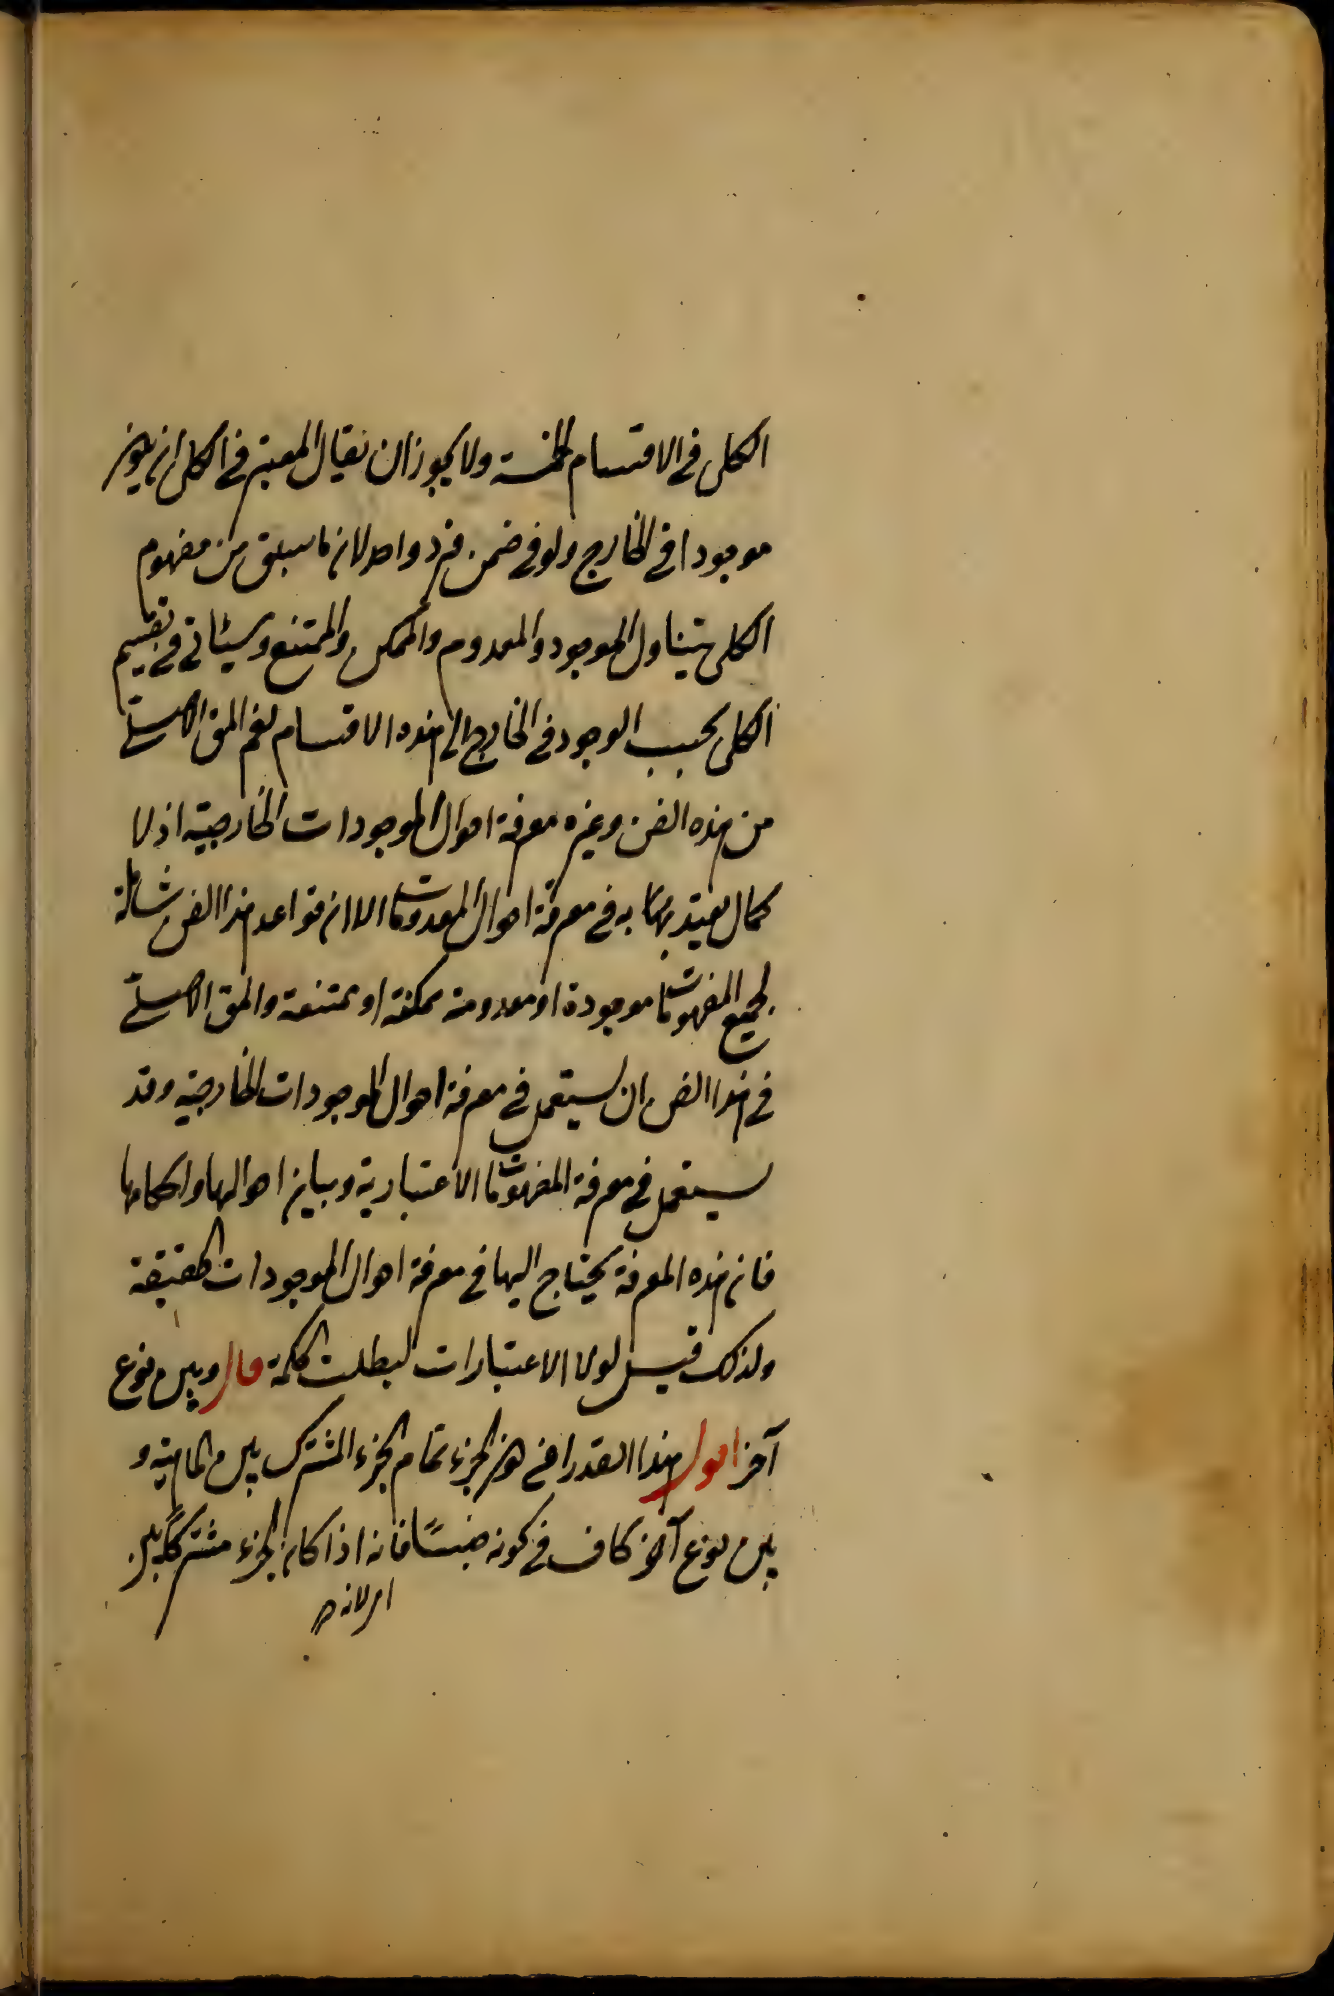 الكلى فى الاقسام الخمسة ولا يجوز ان يقال المعتبر فى الكلى ان يكون
موجودا فى الخارج ولو فى ضمن فرد واحد لان ما سبق من مفهوم
الكلى يتناول الموجود والمعدوم والممكن والممتنع وسيأتى فى تقسيم
الكلى بحسب الوجود فى الخارج الى هذه الاقسام نعم المق الاصلى
من هذه الفن وغيره معرفة احوال الموجودات الخارجية اذ لا
كمال يعتد به فى معرفة احوال المعدومات الا ان قواعد هذا الفن شاملة
لجميع المفهومات موجودة او معدومة ممكنة او ممتنعة والمق الاصلى
فى هذا الفن ان يستعمل فى معرفة احوال الموجودات الخارجية وقد
يستعمل فى معرفة المفهومات الاعتبارية وبيان احوالها واحكامها
فان هذه المعرفة يحتاج اليها فى معرفة احوال الموجودات الحقيقة
ولذلك قيل لولا الاعتبارات لبطلت الحكمة قال وبين نوع
آخر اقول هذا القدر اعنى كون الجزء تمام الجزء المشترك بين الماهية و
بين نوع آخر كاف فى كونه جنسًا فانه اذا كان الجزء مشتركًا بين